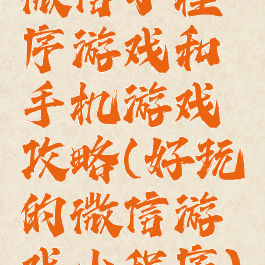 微信小程
序游戏和
手机游戏
攻略(好玩
的微信游
戏小程序)